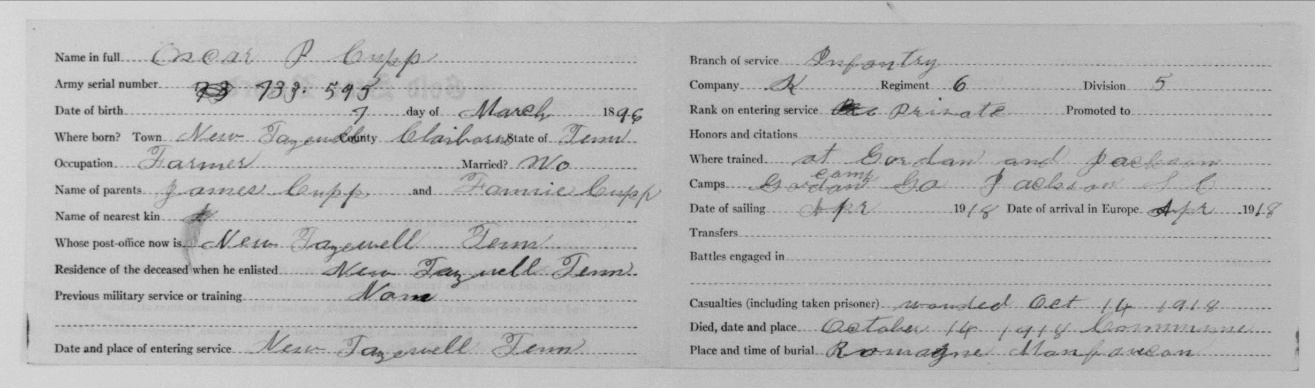 Name in full Oscar P Cupp
Army serial number 733.595
Date of birth 7 day of March 1896
Where born? Town New Tazewell County Claiborne State of Tenn
Occupation Farmer Married? No
Name of parents James Cupp and Fannie Cupp
Name of nearest kin
Whose post-office now is New Tazewell Tenn
Residence of the deceased when he enlisted New Tazwell Tenn.
Previous military service or training Non
Date and place of entering service New Tazewell Tenn
Branch of service Infontry
Company K Regiment 6 Division 5
Rank on entering service Private Promoted to
Honors and citations
Where trained at Gordan and Jackson
camp
Camps Gordan Ga Jackson S C
Date of sailing Apr 1918 Date of arrival in Europe Apr 1918
Transfers
Battles engaged in
Casualties (including taken prisoner) wounded Oct 14 1918
Died, date and place October 14 1918
Place and time of burial Romagne Monfaucon